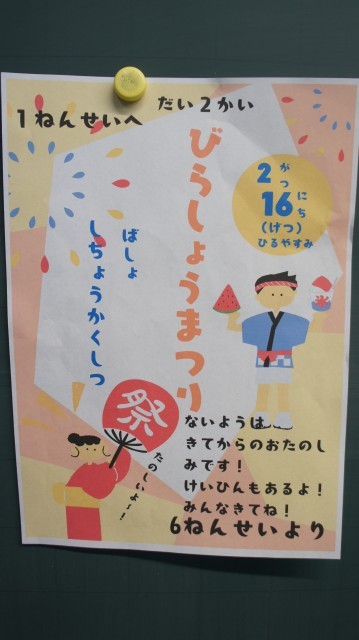 1ねんせいへ
だい2かい
びらしょうまつり
2がつ
16にち
(げつ)
ひるやすみ
ばしょ
しちょうかくしつ
祭
たのしいよ～！
ないようは
きてからのおたのし
みです！
けいひんもあるよ！
みんなきてね！
6ねんせいより